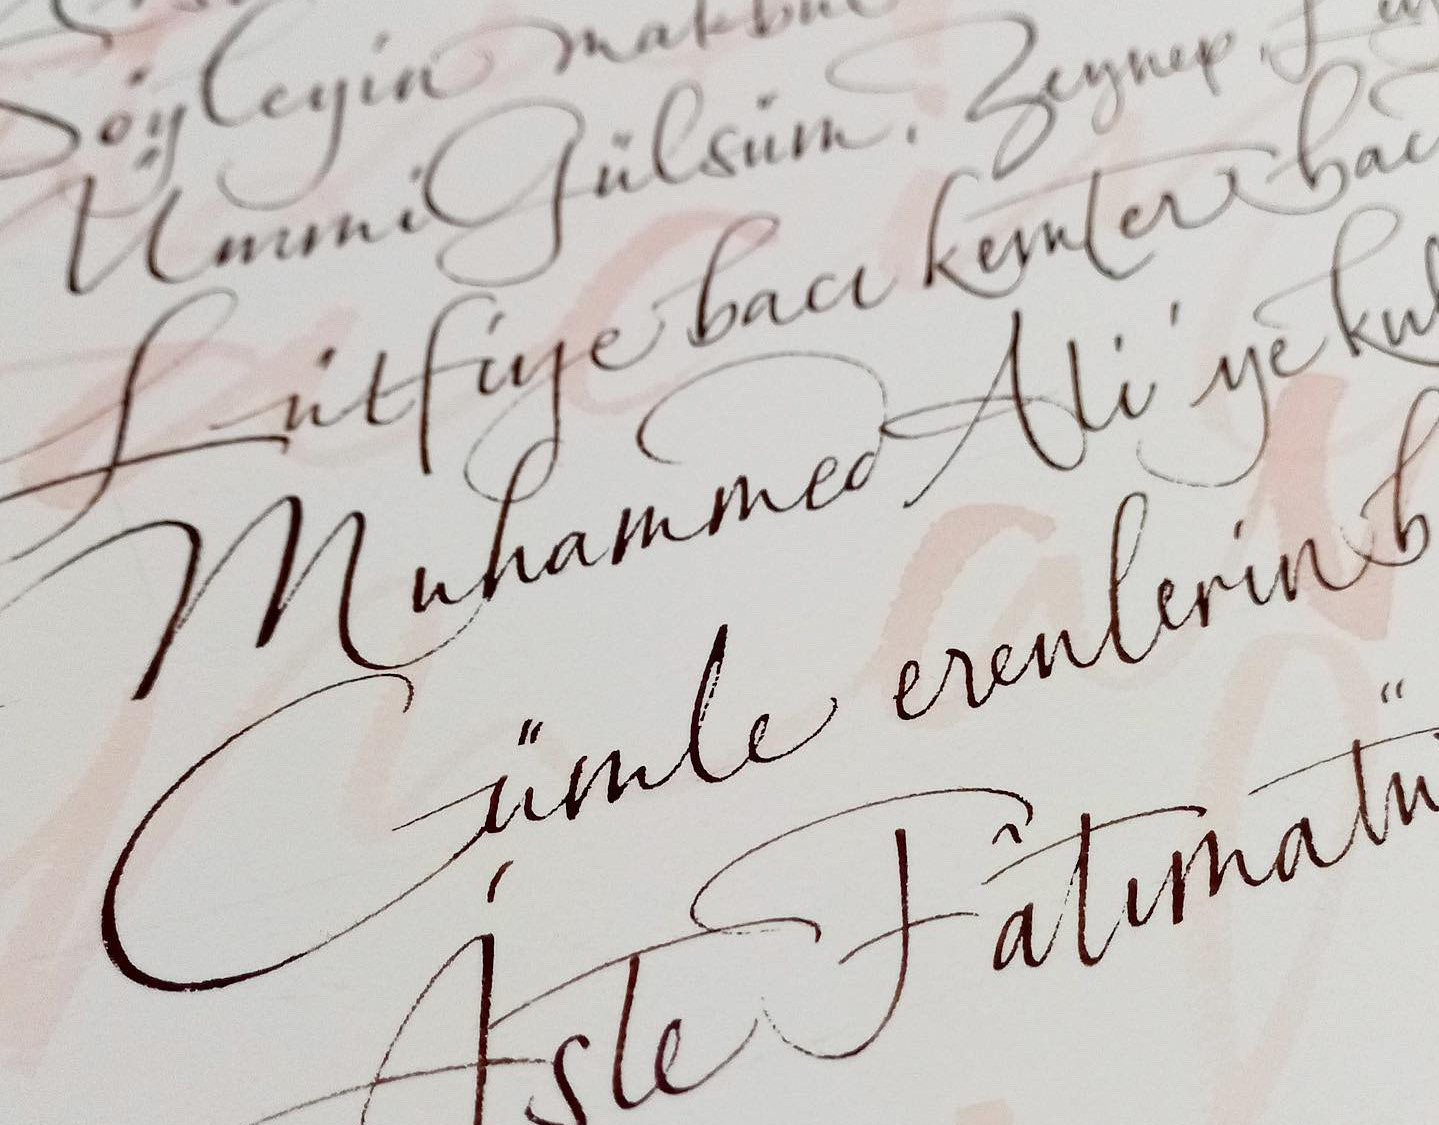 Söyleyin makbul
Ümmi Gülsüm, Zeynep,
Lütfiye bacı kemter bacı
Muhammed Ali'ye kul
Cümle erenlerin b
İşte Fâtımatü